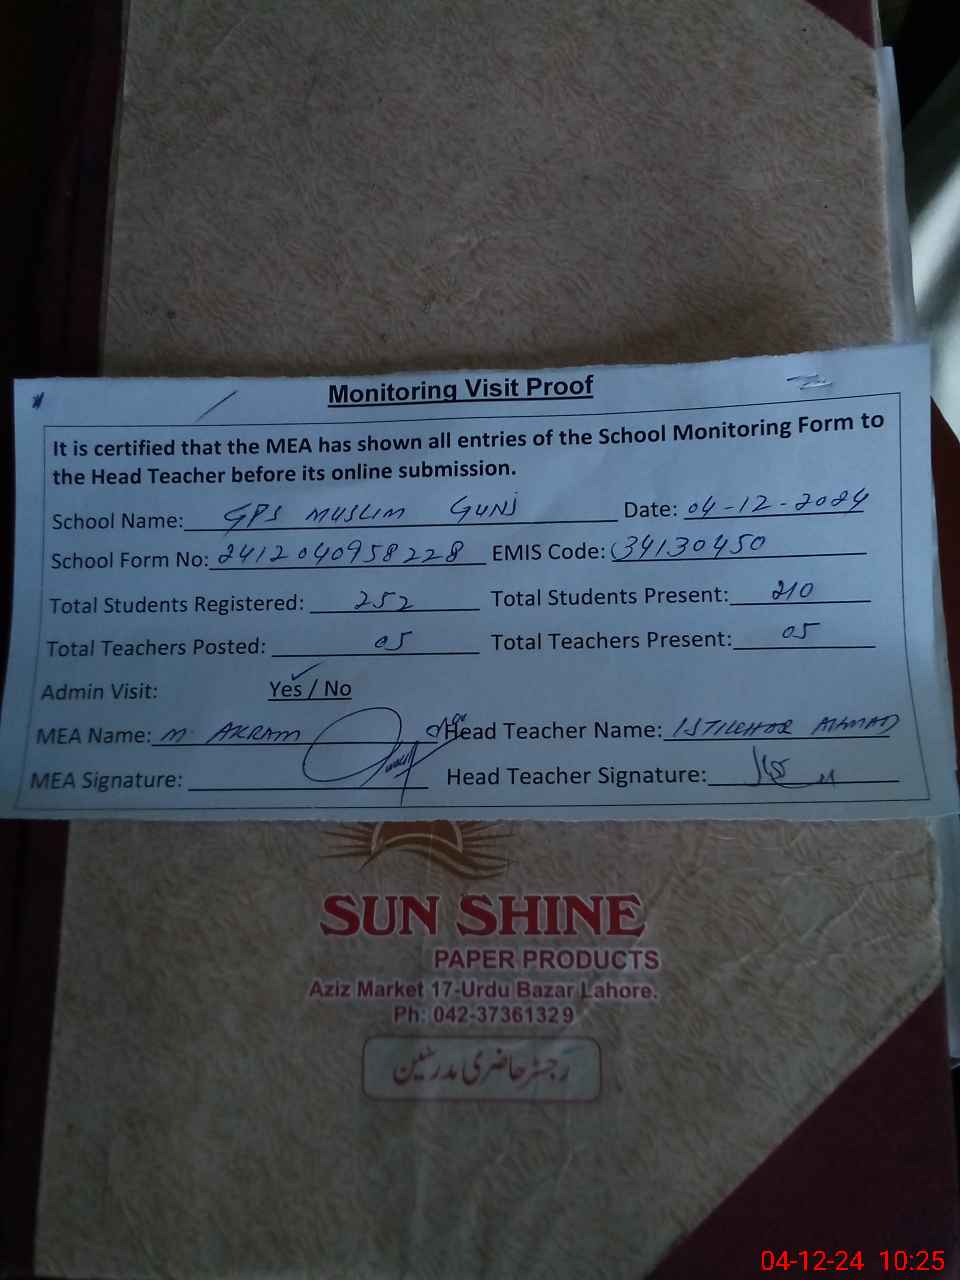 Monitoring Visit Proof
It is certified that the MEA has shown all entries of the School Monitoring Form to
the Head Teacher before its online submission.
School Name: GPS MUSLIM GUNJ Date: 04-12-2024
School Form No: 2412040958228 EMIS Code: 34130450
Total Students Registered: 252 Total Students Present: 210
Total Teachers Posted: 05 Total Teachers Present: 05
Admin Visit: Yes / No
MEA Name: M. AKRAM Head Teacher Name: AHMAD
MEA Signature: Head Teacher Signature:
SUN SHINE
PAPER PRODUCTS
Aziz Market 17-Urdu Bazar Lahore.
Ph: 042-37361329
رجسٹر حاضری مدرسین
04-12-24 10:25